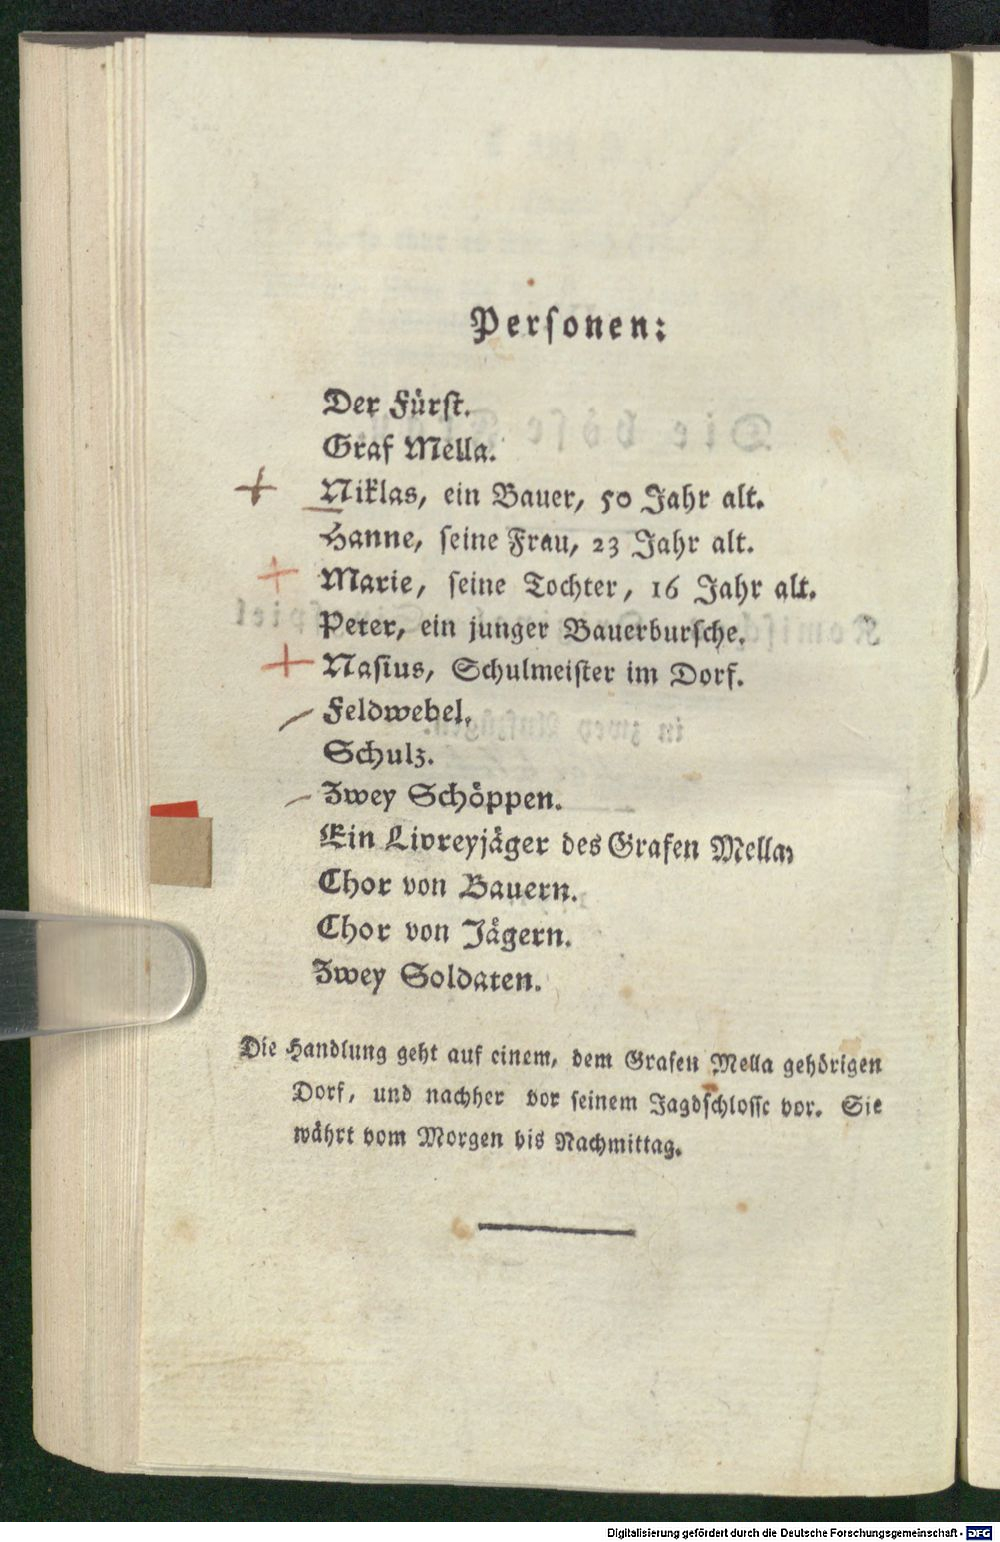 Personen:
Der Fürst.
Graf Mella.
Niklas, ein Bauer, 50 Jahr alt.
Hanne, seine Frau, 23 Jahr alt.
Marie, seine Tochter, 16 Jahr alt.
Peter, ein junger Bauerbursche.
Nasius, Schulmeister im Dorf.
Feldwebel.
Schulz.
Zwey Schöppen.
Ein Livreyjäger des Grafen Mella.
Chor von Bauern.
Chor von Jägern.
Zwey Soldaten.
Die Handlung geht auf einem, dem Grafen Mella gehörigen
Dorf, und nachher vor seinem Jagdschlosse vor. Sie
währt vom Morgen bis Nachmittag.
Digitalisierung gefördert durch die Deutsche Forschungsgemeinschaft - DFG